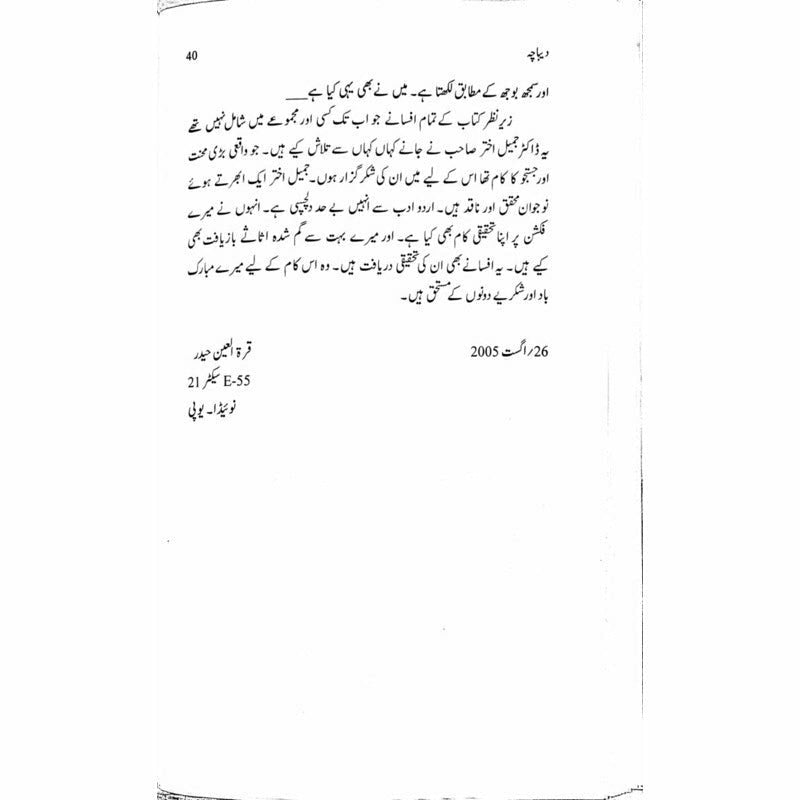 دیباچہ 40
اور سمجھ بوجھ کے مطابق لکھتا ہے۔ میں نے بھی یہی کیا ہے___
زیر نظر کتاب کے تمام افسانے جو اب تک کسی اور مجموعے میں شامل نہیں تھے
یہ ڈاکٹر جمیل اختر صاحب نے جانے کہاں کہاں سے تلاش کیے ہیں۔ جو واقعی بڑی محنت
اور جستجو کا کام تھا اس کے لیے میں ان کی شکر گزار ہوں۔ جمیل اختر ایک ابھرتے ہوئے
نوجوان محقق اور ناقد ہیں۔ اردو ادب سے انہیں بے حد دلچسپی ہے۔ انہوں نے میرے
فکشن پر اپنا تحقیقی کام بھی کیا ہے۔ اور میرے بہت سے گم شدہ اثاثے بازیافت بھی
کیے ہیں۔ یہ افسانے بھی ان کی تحقیقی دریافت ہیں۔ وہ اس کام کے لیے میرے مبارک
باد اور شکریے دونوں کے مستحق ہیں۔
26/اگست 2005 قرۃ العین حیدر
E-55 سیکٹر 21
نوئیڈا۔ یوپی